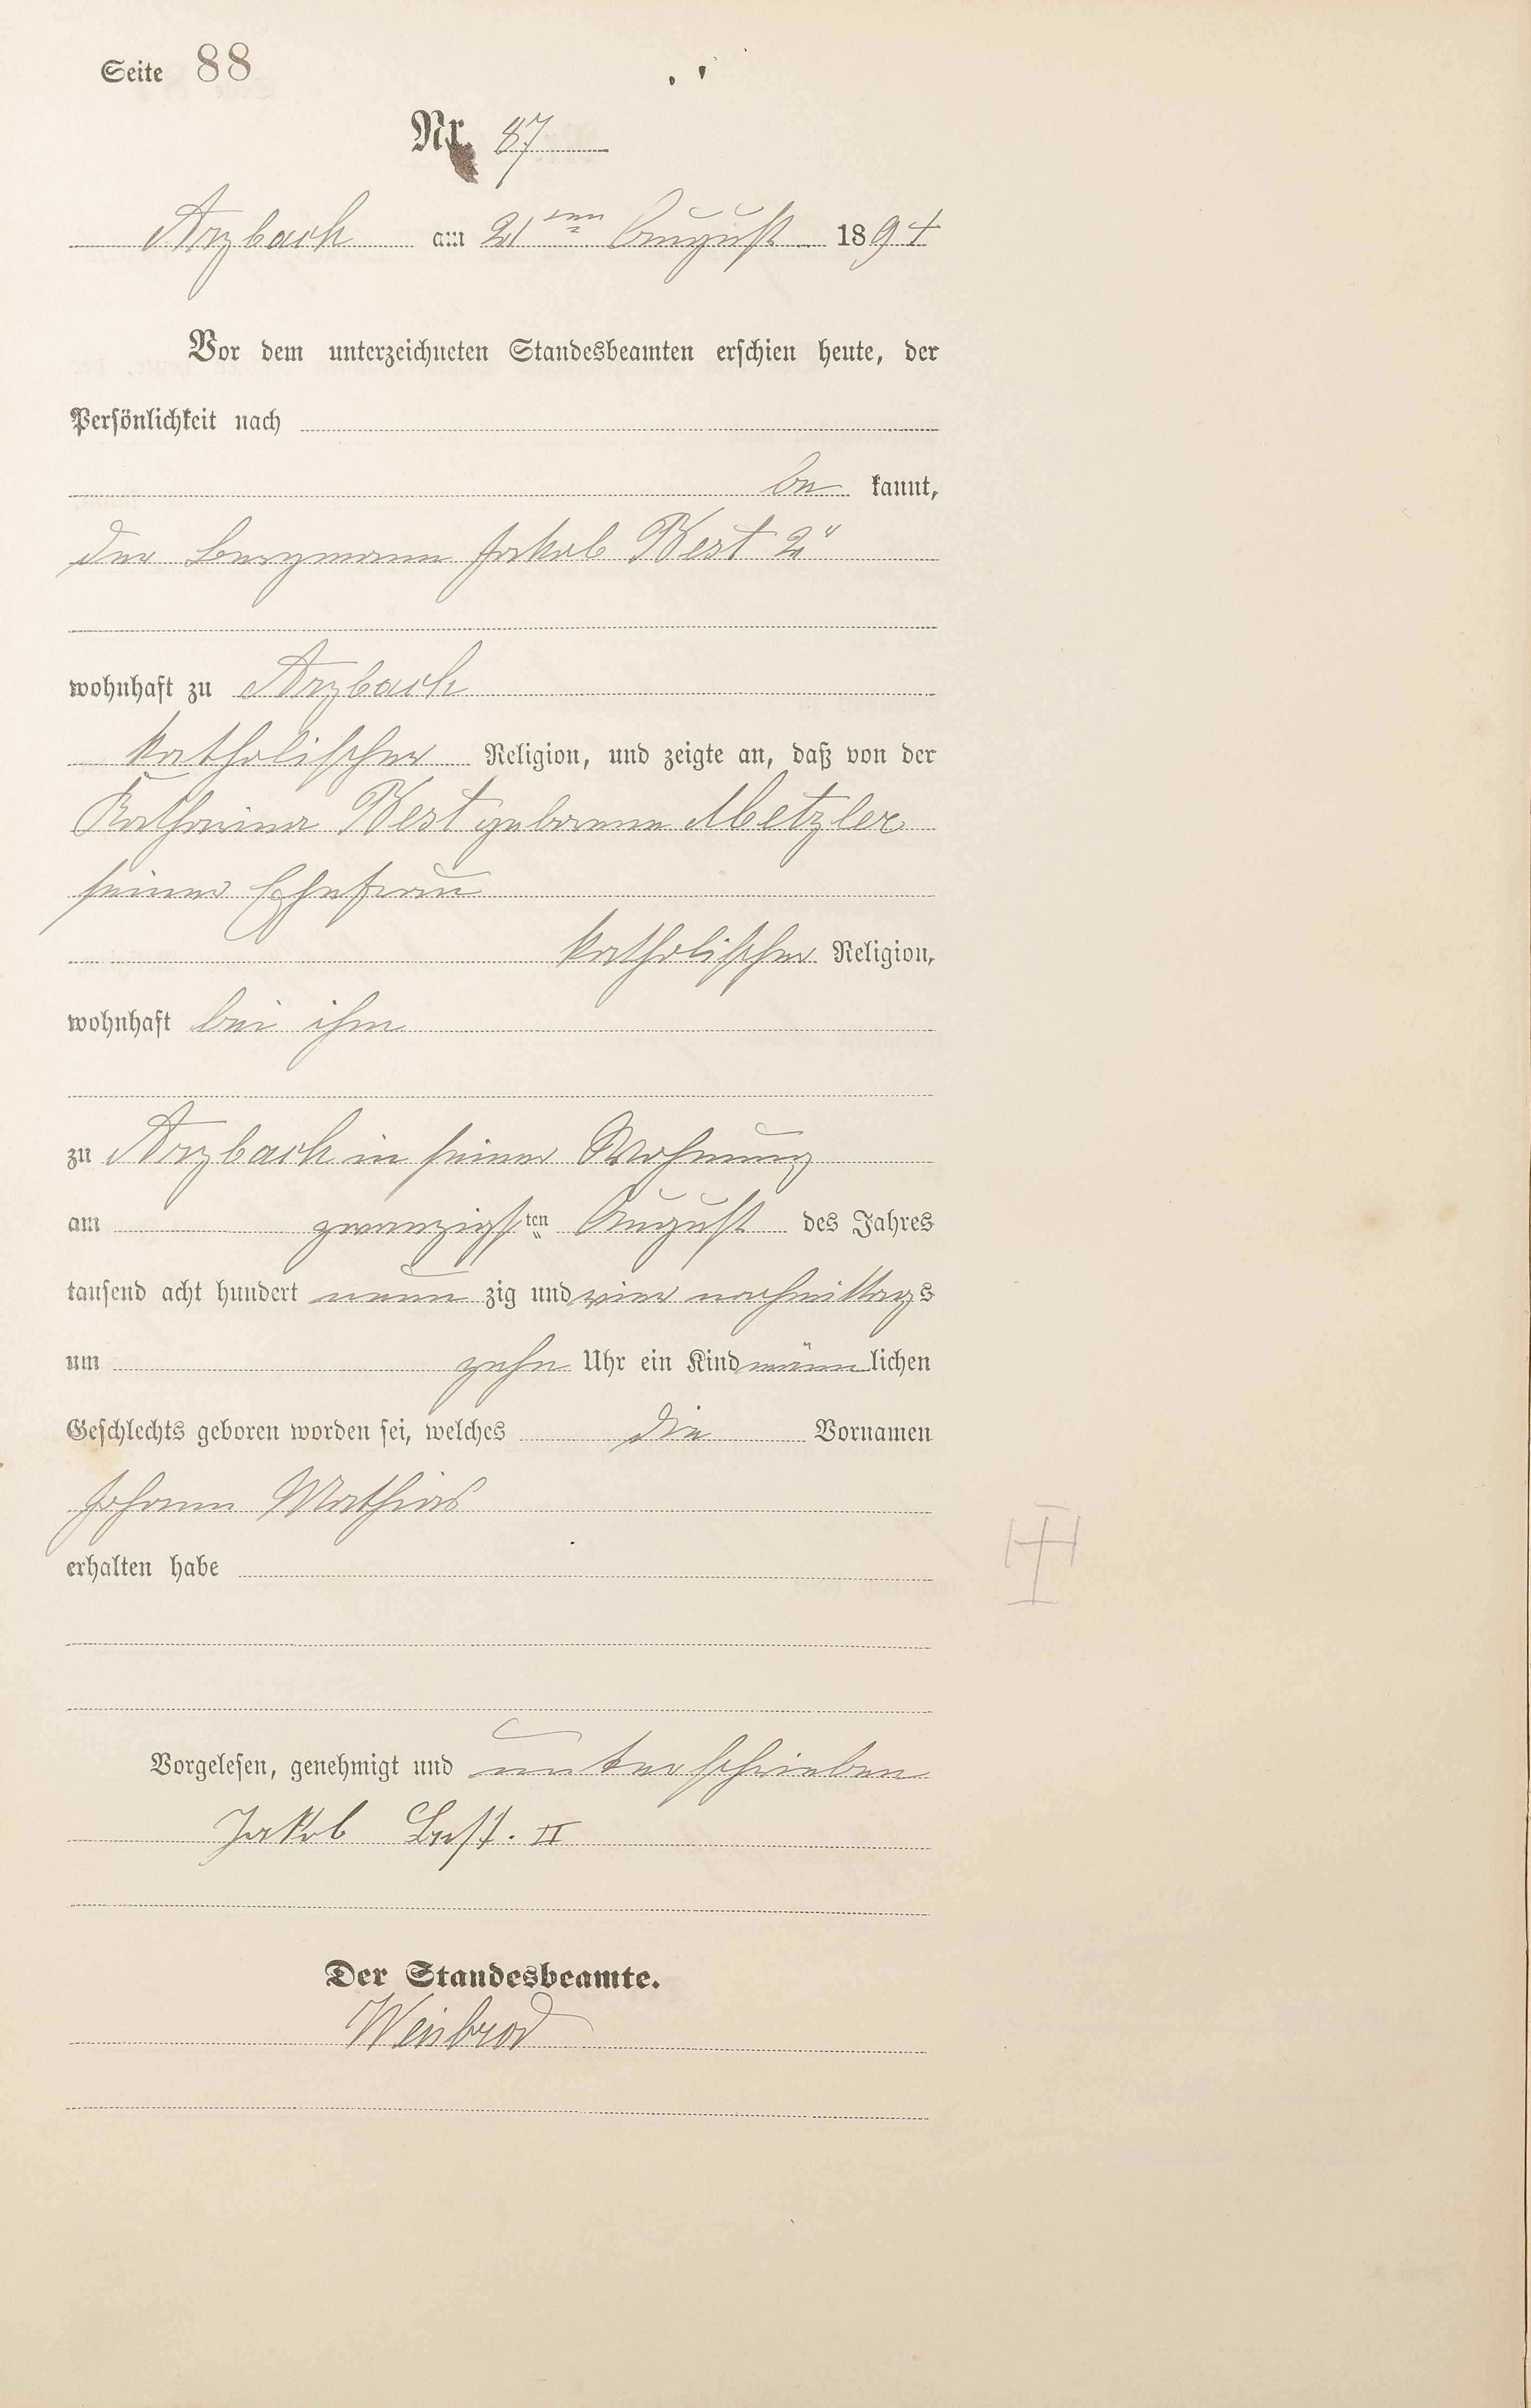 Seite 88
Nr. 87
Arzbach am 21ten August 1894
Vor dem unterzeichneten Standesbeamten erschien heute, der
Persönlichkeit nach
be kannt,
der Bergmann Jakob Best 2"
wohnhaft zu Arzbach
katholischer Religion, und zeigte an, daß von der
Katharina Best geborene Metzler
seiner Ehefrau
katholischer Religion,
wohnhaft bei ihm
zu Arzbach in seiner Wohnung
am zwanzigsten August des Jahres
tausend acht hundert neun zig und vier nachmittags
um zehn Uhr ein Kind männlichen
Geschlechts geboren worden sei, welches die Vornamen
Johann Mathias
erhalten habe
Vorgelesen, genehmigt und unterschrieben
Jakob Best. II
Der Standesbeamte.
Weisbrod